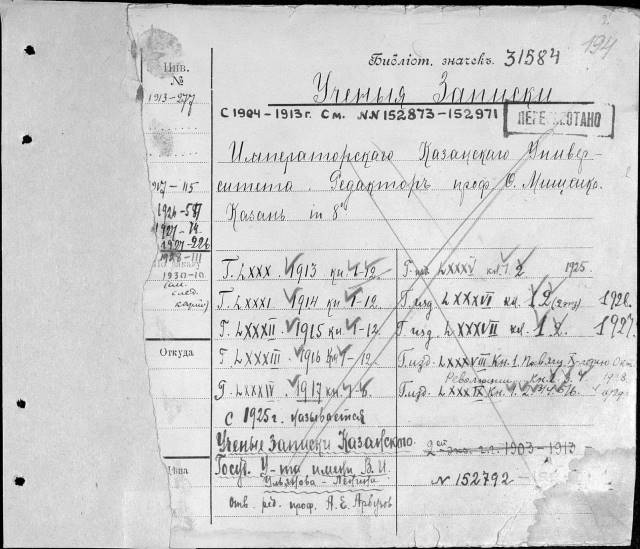 2.
194
Библіот. значекъ. 31584
Инв.
№
Ученыя Записки
1913-277
с 1904-1913г. См. NN 152873-152971
ПЕРЕ ОТАНО
Императорскаго Казанскаго Универ-
ситета. Редакторъ проф. Ѳ. Мищенко.
Казань in 8°
917-115
1926-587
1927-74
1927-226
1928-111
1930-10
(см.
след.
карт.)
Г. LXXX 1913 кн. 1-12.
Г. LXXXI 1914 кн. 1-12
Г. LXXXII 1915 кн. 1-12
Г. LXXXIII. 1916 кн. 1-12
Г. LXXXIV. 1917 кн. 1-8.
с 1925г. называется
Ученые Записки Казанского
Госуд. У-та имени В.И.
Ульянова-Ленина
отв. ред. проф. А.Е. Арбузов
Г. изд. LXXXV кн. 1. 2 1925.
Г. изд. LXXXVI кн. 1 2 1926.
Г. изд. LXXXVII кн. 1 2. 1927.
Г. изд. LXXXVIII Кн. 1. Посвящ. X-годию Окт.
Революции Кн. 2. 3. 4 1928.
Г. изд. LXXXIX Кн. 1. 2 3 4 5/6. 1929.
2ой экз. 1903-1913
N 152792
Откуда
Цѣна